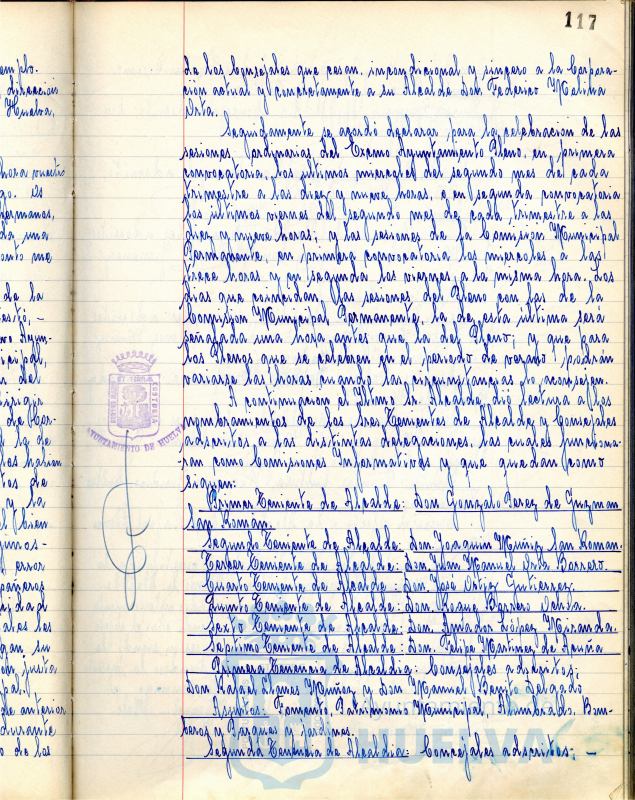 117
de los Consejales que cesan, incondicional y sincero a la Corpora-
cion actual y concretamente a su Alcalde Don Federico Molina
Orta.
Seguidamente se acordó declarar para la celebracion de las
sesiones ordinarias del Excmo Ayuntamiento Pleno, en primera
convocatoria, los ultimos miercoles del segundo mes del cada
trimestre a las diez y nueve horas, y en segunda convocatoria
los ultimos viernes del segundo mes de cada trimestre a las
diez y nueve horas; y las sesiones de la Comision Municipal
Permanente, en primera convocatoria los miercoles a las
trece horas y en segunda los viernes a la misma hora. Los
dias que coincidan las sesiones del Pleno con las de la
Comision Municipal Permanente, la de esta ultima será
señalada una hora antes que la del Pleno; y que para
los Plenos que se celebren en el periodo de verano podrán
variarse las horas cuando las circunstancias lo aconsejen.
A continuacion el Iltmo Sr. Alcalde dió lectura a los
nombramientos de los Sres Tenientes de Alcalde y Consejales
adscritos a las distintas delegaciones, las cuales funciona-
ran como Comisiones Informativas y que quedan como
siguen:
Primer Teniente de Alcalde: Don Gonzalo Perez de Guzman
San Roman.
Segundo Teniente de Alcalde: Don Joaquin Muñiz San Roman.
Tercer Teniente de Alcalde: Don Juan Manuel Borrero.
Cuarto Teniente de Alcalde: Don José Ortiz Gutierrez.
Quinto Teniente de Alcalde: Don Roque Barrero
Sexto Teniente de Alcalde: Don Amador López Miranda.
Séptimo Teniente de Alcalde: Don Felipe Martinez de Acuña
Primera Tenencia de Alcaldia: Consejales adscritos:
Don Rafael Llanes Muñoz y Don Manuel Benito Delgado
Asuntos: Fomento, Patrimonio Municipal, Alumbrado, Bom-
beros y Parques y Jardines.
Segunda Tenencia de Alcaldia: Concejales adscritos: -
AYUNTAMIENTO DE HUELVA
HUELVA